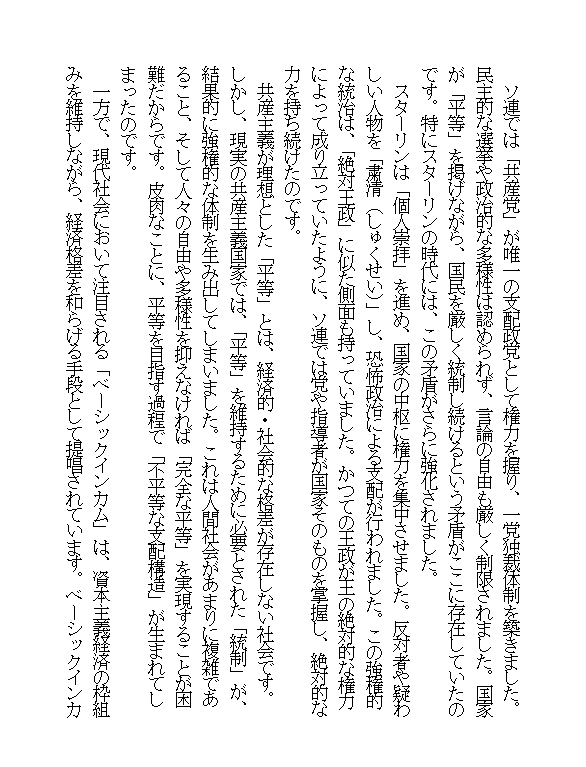 ソ連では「共産党」が唯一の支配政党として権力を握り、一党独裁体制を築きました。
民主的な選挙や政治的な多様性は認められず、言論の自由も厳しく制限されました。国家
が「平等」を掲げながら、国民を厳しく統制し続けるという矛盾がここに存在していたの
です。特にスターリンの時代には、この矛盾がさらに強化されました。
スターリンは「個人崇拝」を進め、国家の中枢に権力を集中させました。反対者や疑わ
しい人物を「粛清（しゅくせい）」し、恐怖政治による支配が行われました。この強権的
な統治は、「絶対王政」に似た側面も持っていました。かつての王政が王の絶対的な権力
によって成り立っていたように、ソ連では党や指導者が国家そのものを掌握し、絶対的な
力を持ち続けたのです。
共産主義が理想とした「平等」とは、経済的・社会的な格差が存在しない社会です。
しかし、現実の共産主義国家では、「平等」を維持するために必要とされた「統制」が、
結果的に強権的な体制を生み出してしまいました。これは人間社会があまりに複雑であ
ること、そして人々の自由や多様性を抑えなければ「完全な平等」を実現することが困
難だからです。皮肉なことに、平等を目指す過程で「不平等な支配構造」が生まれてし
まったのです。
一方で、現代社会において注目される「ベーシックインカム」は、資本主義経済の枠組
みを維持しながら、経済格差を和らげる手段として提唱されています。ベーシックインカ